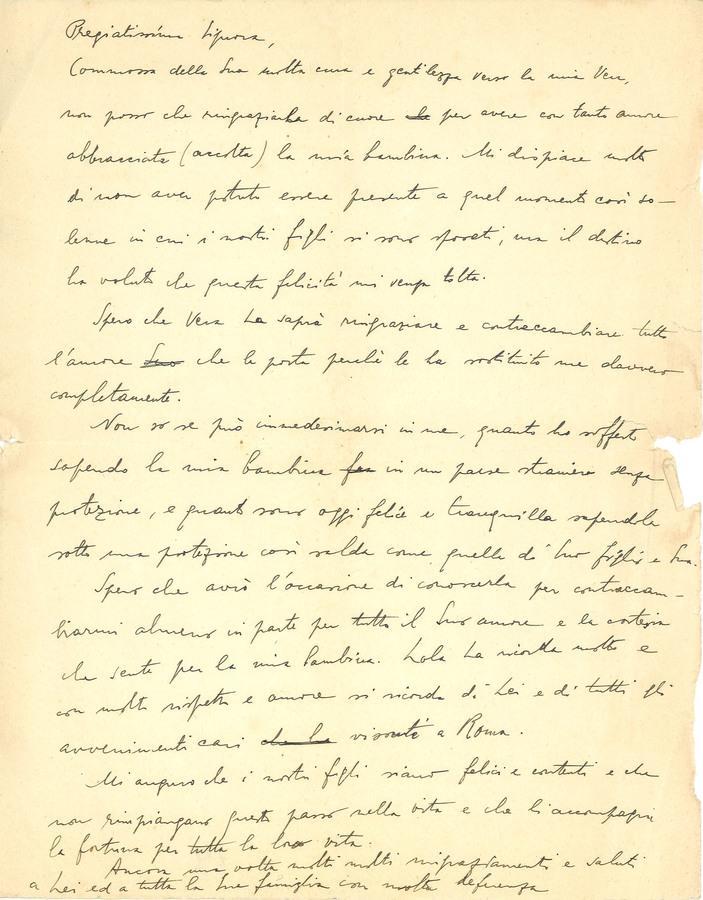 Pregiatissima Signora,
Commossa della Sua molta cura e gentilezza verso la mia Vera,
non posso che ringraziarLa di cuore la per avere con tanto amore
abbracciata (accolta) la mia bambina. Mi dispiace molto
di non aver potuto essere presente a quel momento così so-
lenne in cui i nostri figli si sono sposati, ma il destino
ha voluto che questa felicità mi venga tolta.
Spero che Vera La saprà ringraziare e contraccambiare tutto
l'amore Suo che le porta perchè le ha sostituito me davvero
completamente.
Non so se può immedesimarsi in me, quanto ho sofferto
sapendo la mia bambina in un paese straniero senza
protezione, e quanto sono oggi felice e tranquilla sapendola
sotto una protezione così salda come quella di Suo figlio e Sua.
Spero che avrò l'occasione di conoscerla per contraccam-
biarmi almeno in parte per tutto il Suo amore e la cortesia
che sente per la mia bambina. Lola La ricorda molto e
con molto rispetto e amore si ricorda di Lei e di tutti gli
avvenimenti cari che ha vissuti a Roma.
Mi auguro che i nostri figli siano felici e contenti e che
non rimpiangano questo passo nella vita e che li accompagni
la fortuna per tutta la loro vita.
Ancora una volta molti molti ringraziamenti e saluti
a Lei ed a tutta la Sua famiglia con molta deferenza